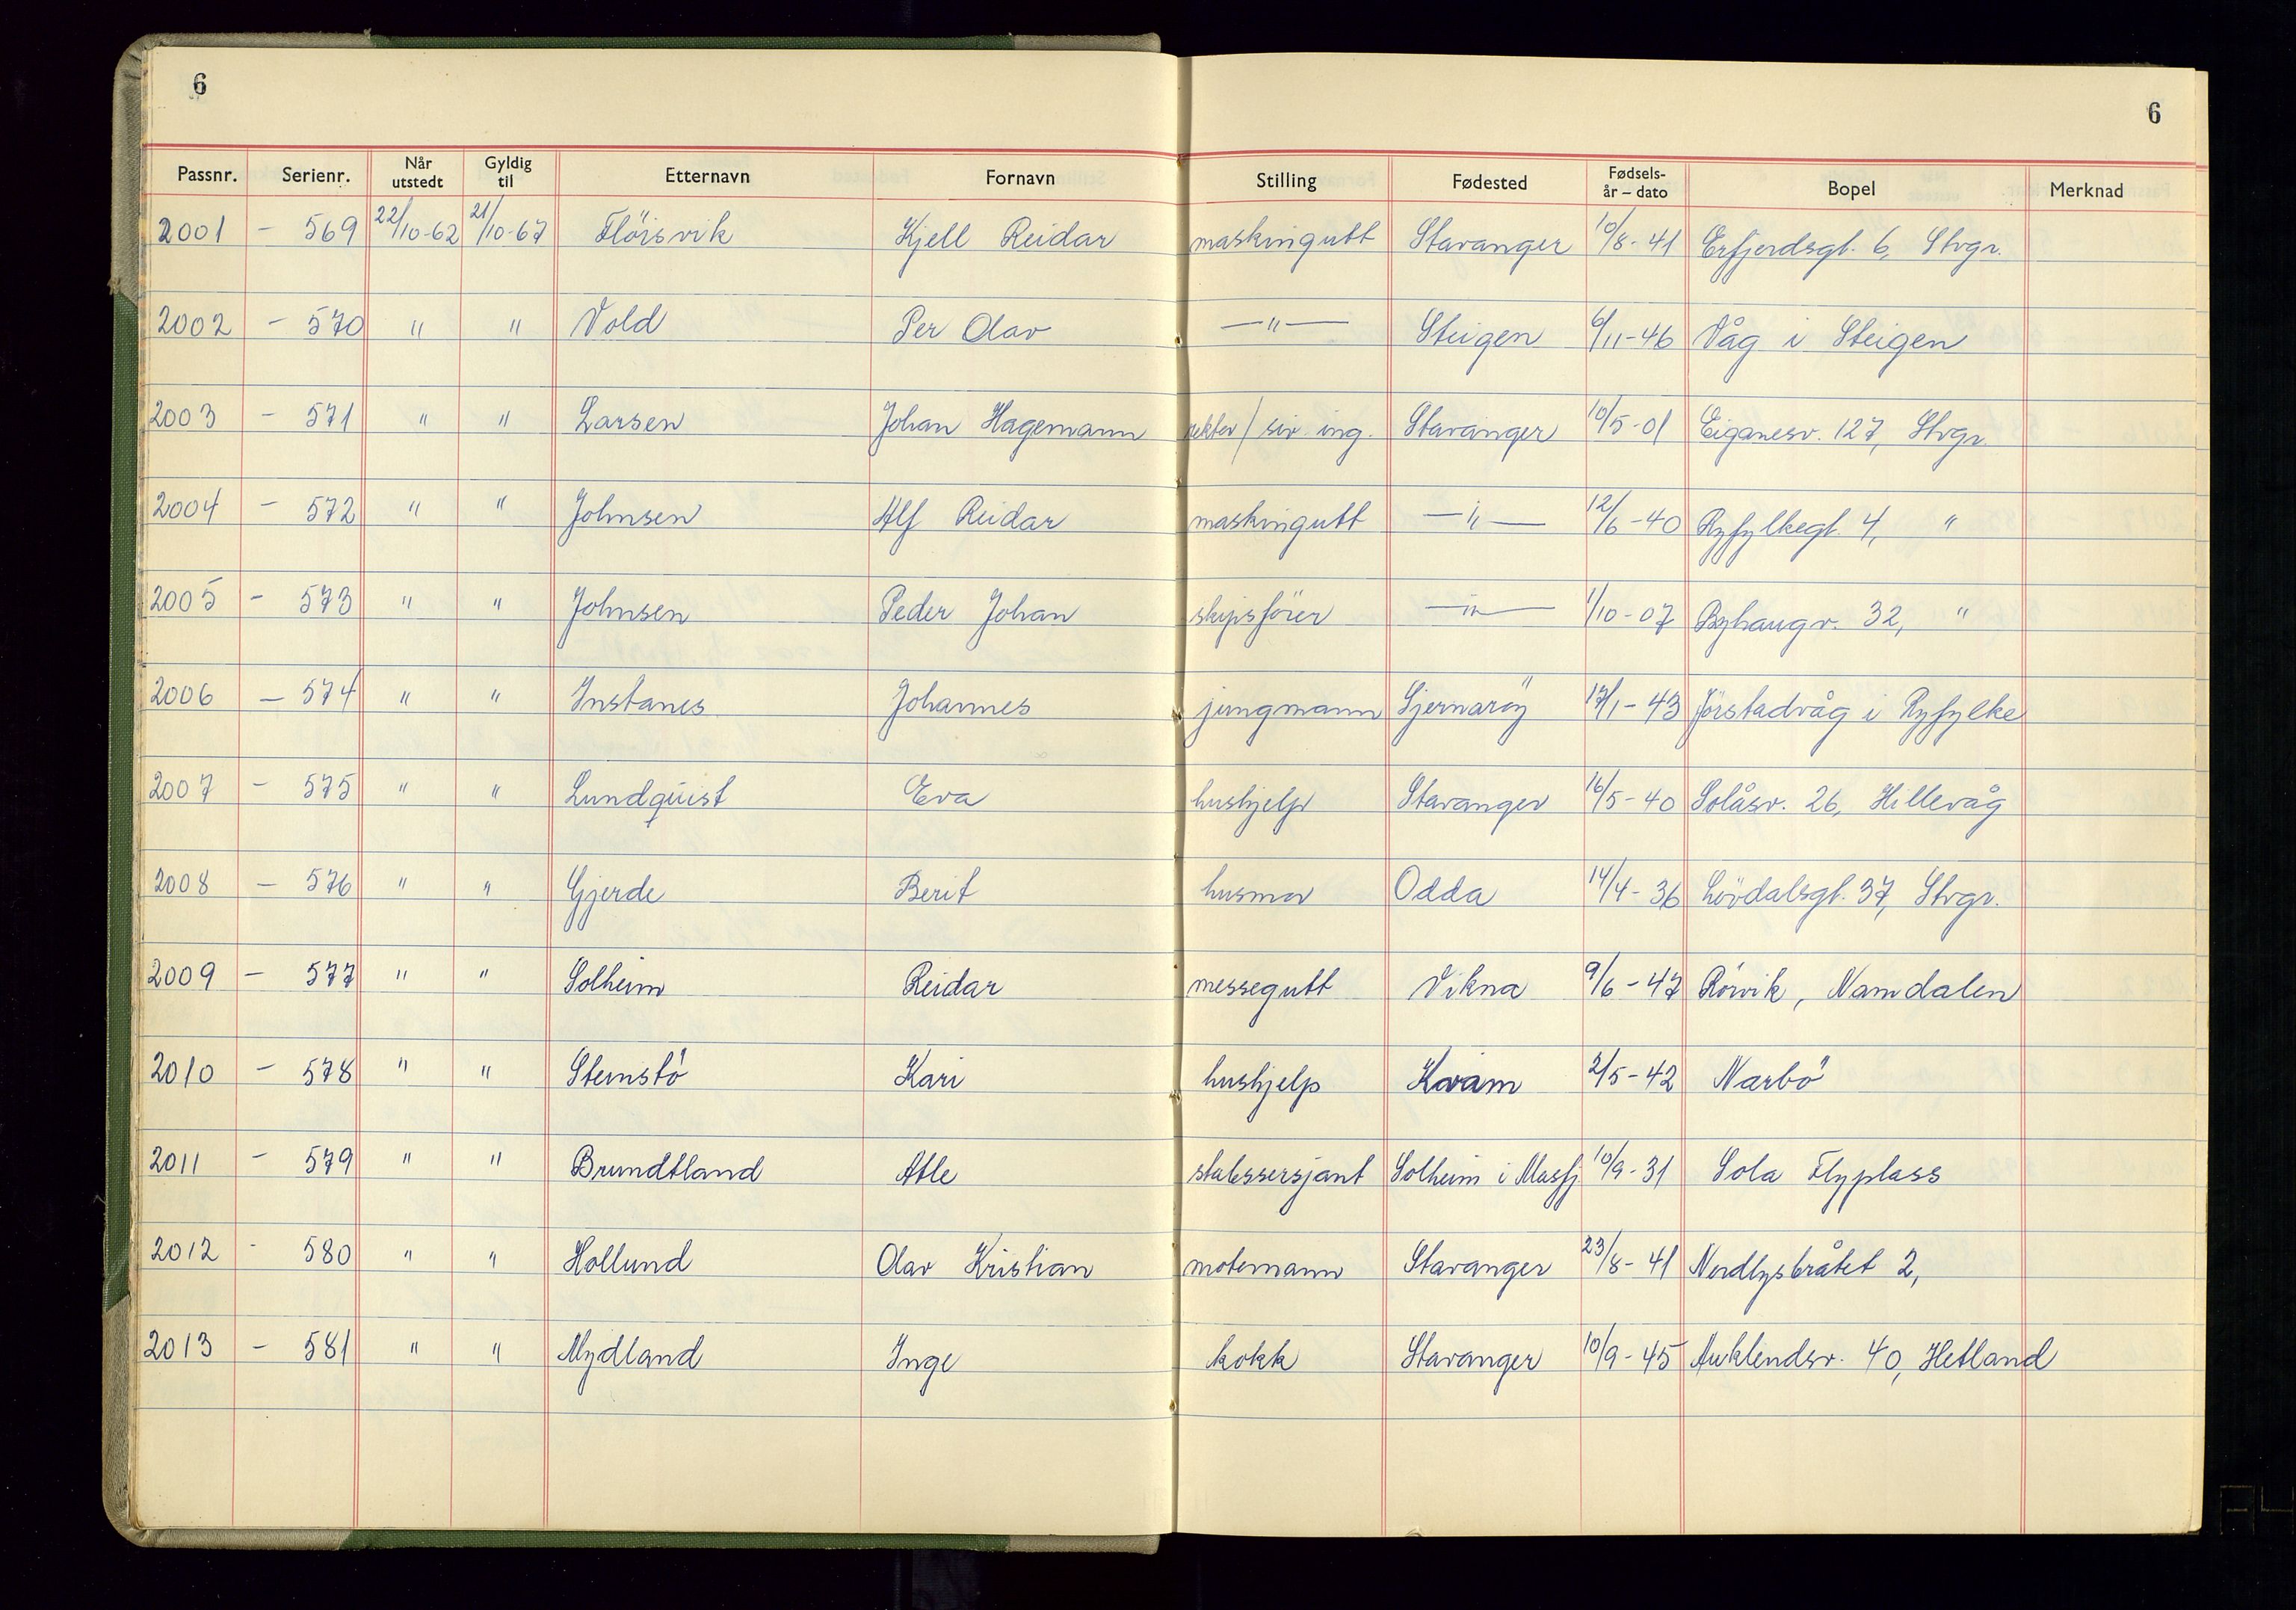 6
6
Passnr. Serienr. Når utstedt Gyldig til Etternavn Fornavn Stilling Fødested Fødsels- år – dato Bopel Merknad
2001 – 569 22/10-62 21/10-67 Flöisvik Kjell Reidar maskingutt Stavanger 10/8-41 Erfjordsgt. 6, Stvgr.
2002 – 570 " " Vold Per Olav —"— Steigen 6/11-46 Våg i Steigen
2003 – 571 " " Larsen Johan Hagemann rektor/siv. ing. Stavanger 10/5-01 Eiganesv. 127, Stvgr.
2004 – 572 " " Johnsen Alf Reidar maskingutt —"— 12/6-40 Ryfylkegt. 4, "
2005 – 573 " " Johnsen Peder Johan skipsförer —"— 1/10-07 Byhaugv. 32, "
2006 – 574 " " Instanes Johannes jungmann Sjernaröy 17/1-43 Jörstadvåg i Ryfylke
2007 – 575 " " Lundquist Eva hushjelp Stavanger 16/5-40 Solåsv. 26, Hillevåg
2008 – 576 " " Gjerde Berit husmor Odda 14/4-36 Lövdalsgt. 37, Stvgr.
2009 – 577 " " Solheim Reidar messegutt Vikna 9/6-47 Rörvik, Namdalen
2010 – 578 " " Steinstö Kari hushjelp Kvam 2/5-42 Nærbö
2011 – 579 " " Brundtland Atle stabssersjant Solheim i Masfj. 10/9-31 Sola Flyplass
2012 - 580 " " Hollund Olav Kristian motormann Stavanger 23/8-41 Nordlysbråtet 2,
2013 – 581 " " Mydland Inge kokk Stavanger 10/9-45 Auklendsv. 40, Hetland